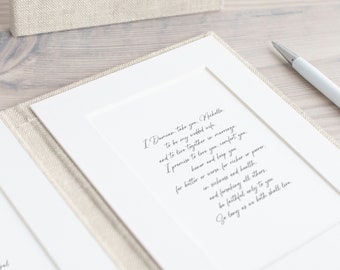 I, Damian, take you, Michelle,
to be my wedded wife,
and to live together in marriage.
I promise to love you, comfort you,
honor and keep you
for better or worse, for richer or poorer,
in sickness and health,
and forsaking all others,
be faithful only to you
So long as we both shall live.